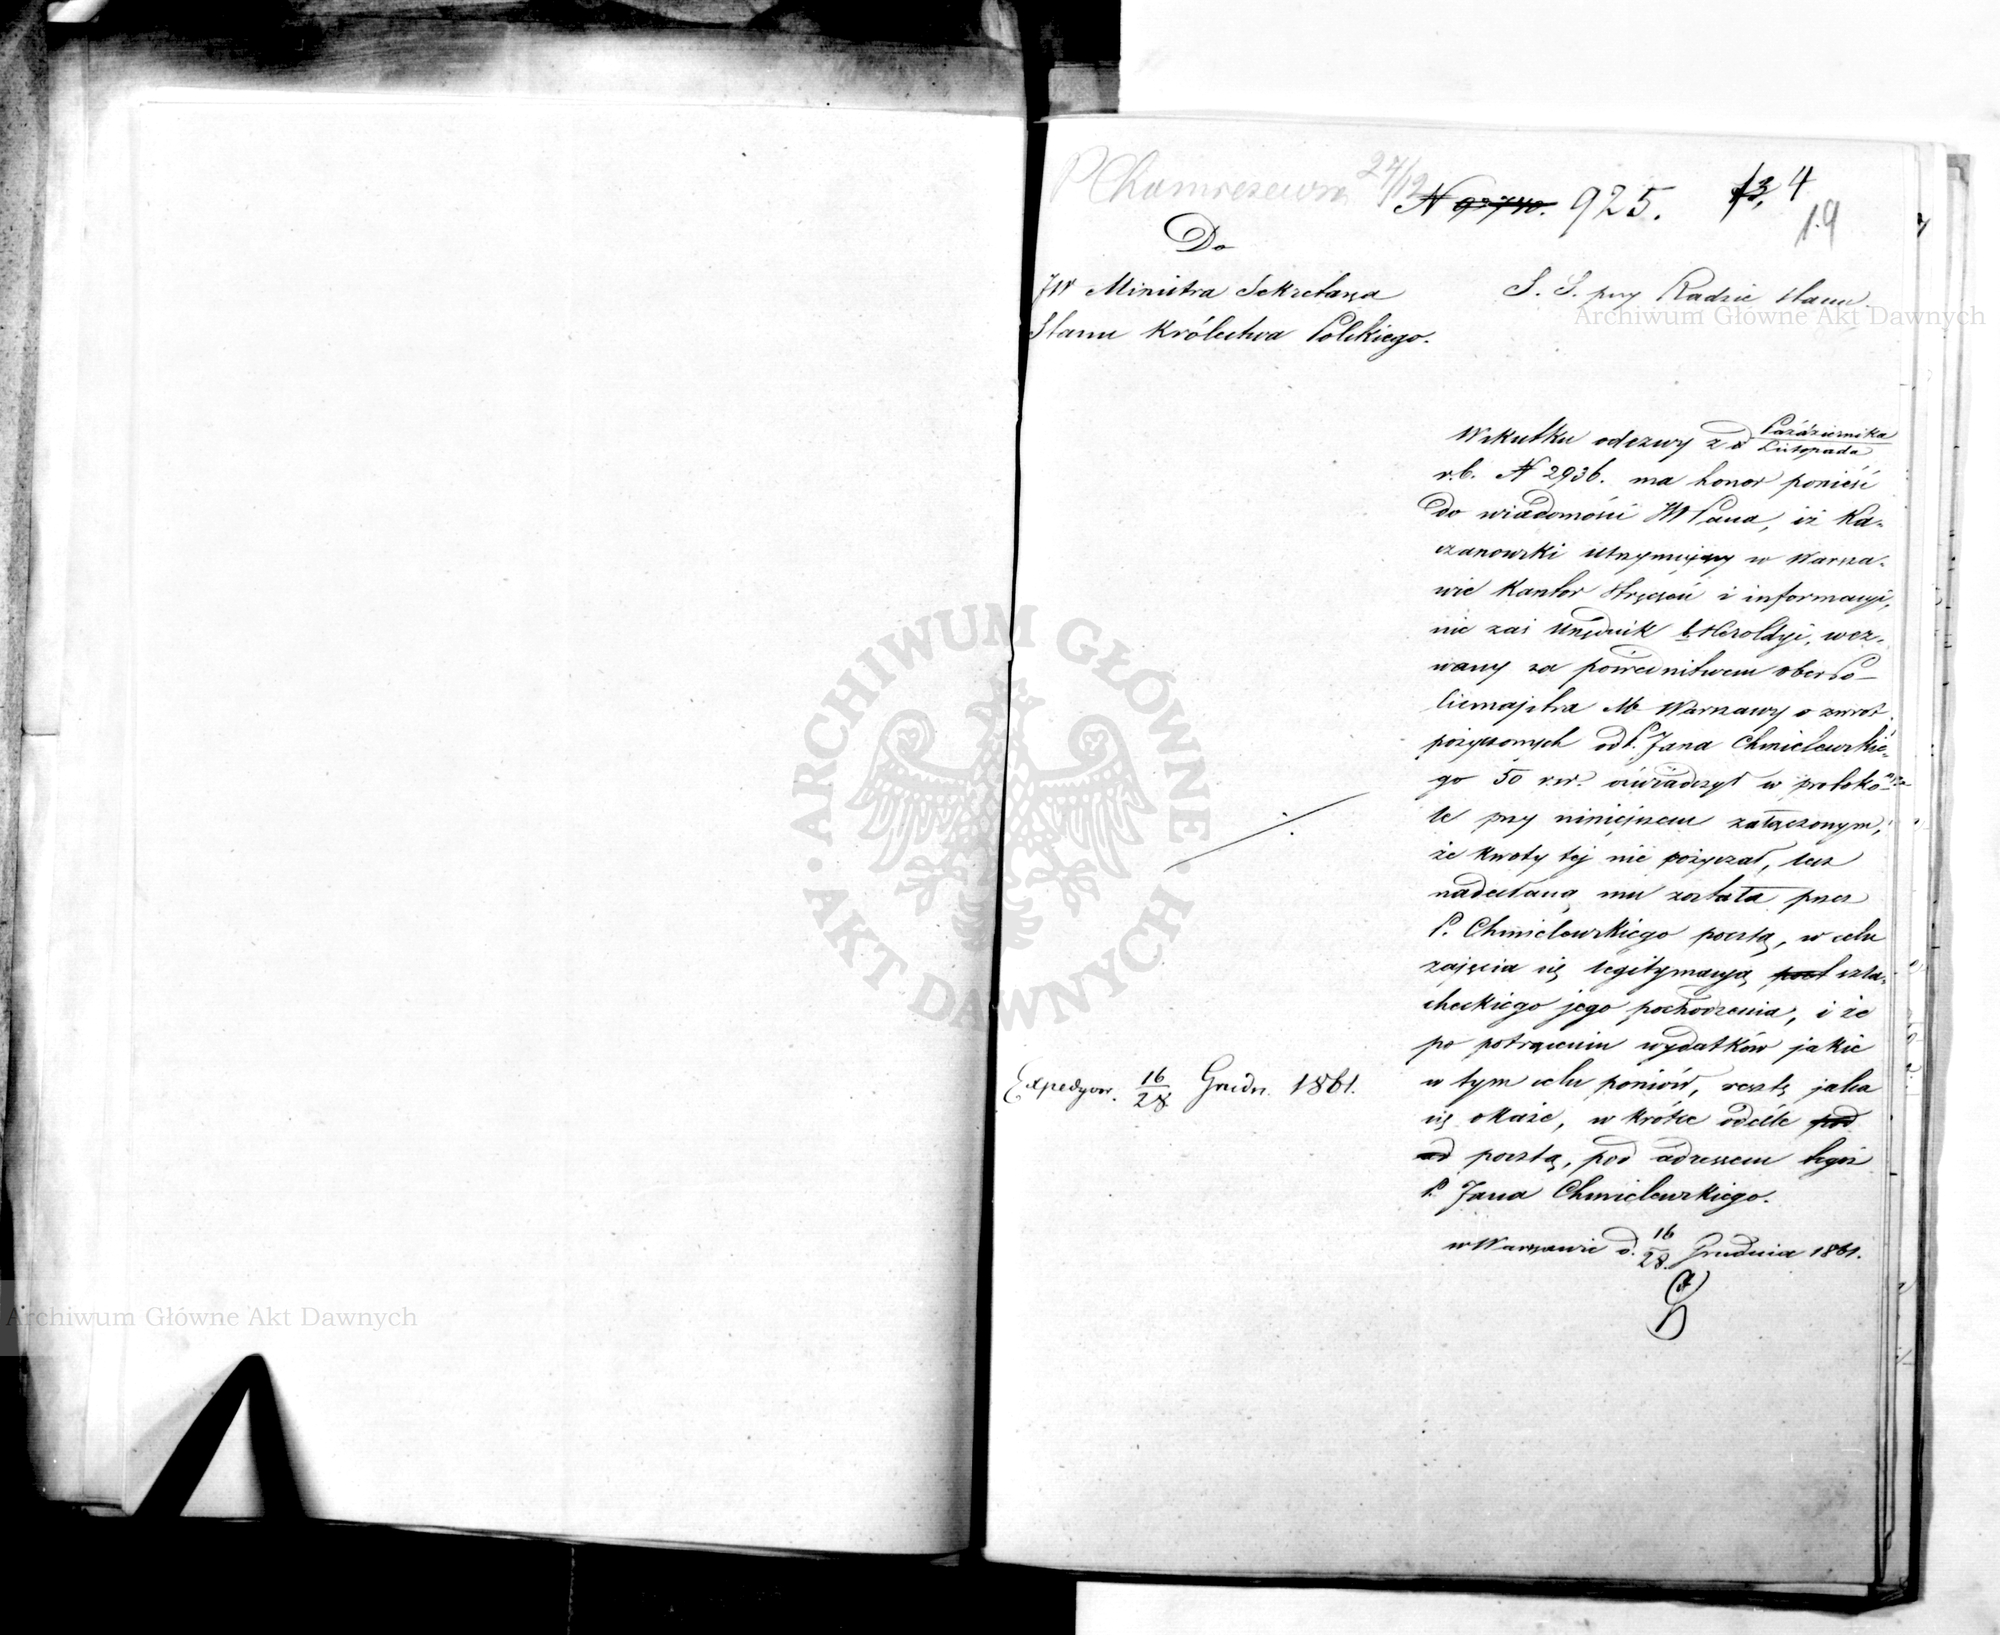 27/12
N 925. 4
19
Do
JW Ministra Sekretarza
Stanu Królestwa Polskiego.
S. S. przy Radzie Stanu
Wskutku odezwy z d Października
Listopada
r.b. N 2936. ma honor ponieść
do wiadomości JW Pana, iż Ka-
czanowski utrzymujący w Warsza-
wie Kantor Stręczeń i informacyi,
nie zaś Urzędnik b. Heroldyi, wez-
wany za pośrednitwem oberPo-
licmajstra M. Warszawy o zwrot
pożyczonych od P. Jana Chmielewskie-
go 50 rsr. oświadczył w protokó-
le przy niniejszem załączonym,
że kwoty tej nie pożyczał, lecz
nadesłaną mu została przez
P. Chmielewskiego pocztą, w celu
zajęcia się legitymacyą szla-
checkiego jego pochodzenia, i że
po potrąceniu wydatków jakie
w tym celu poniósł, resztę jaka
się okaże, w krótce odeśle
pocztą, pod adressem tegoż
P. Jana Chmielewskiego.
w Warszawie d. 16/28 Grudnia 1861.
Expedyow. 16/28 Grudn. 1861.
Archiwum Główne Akt Dawnych
Archiwum Główne Akt Dawnych
ARCHIWUM GŁÓWNE · AKT DAWNYCH ·